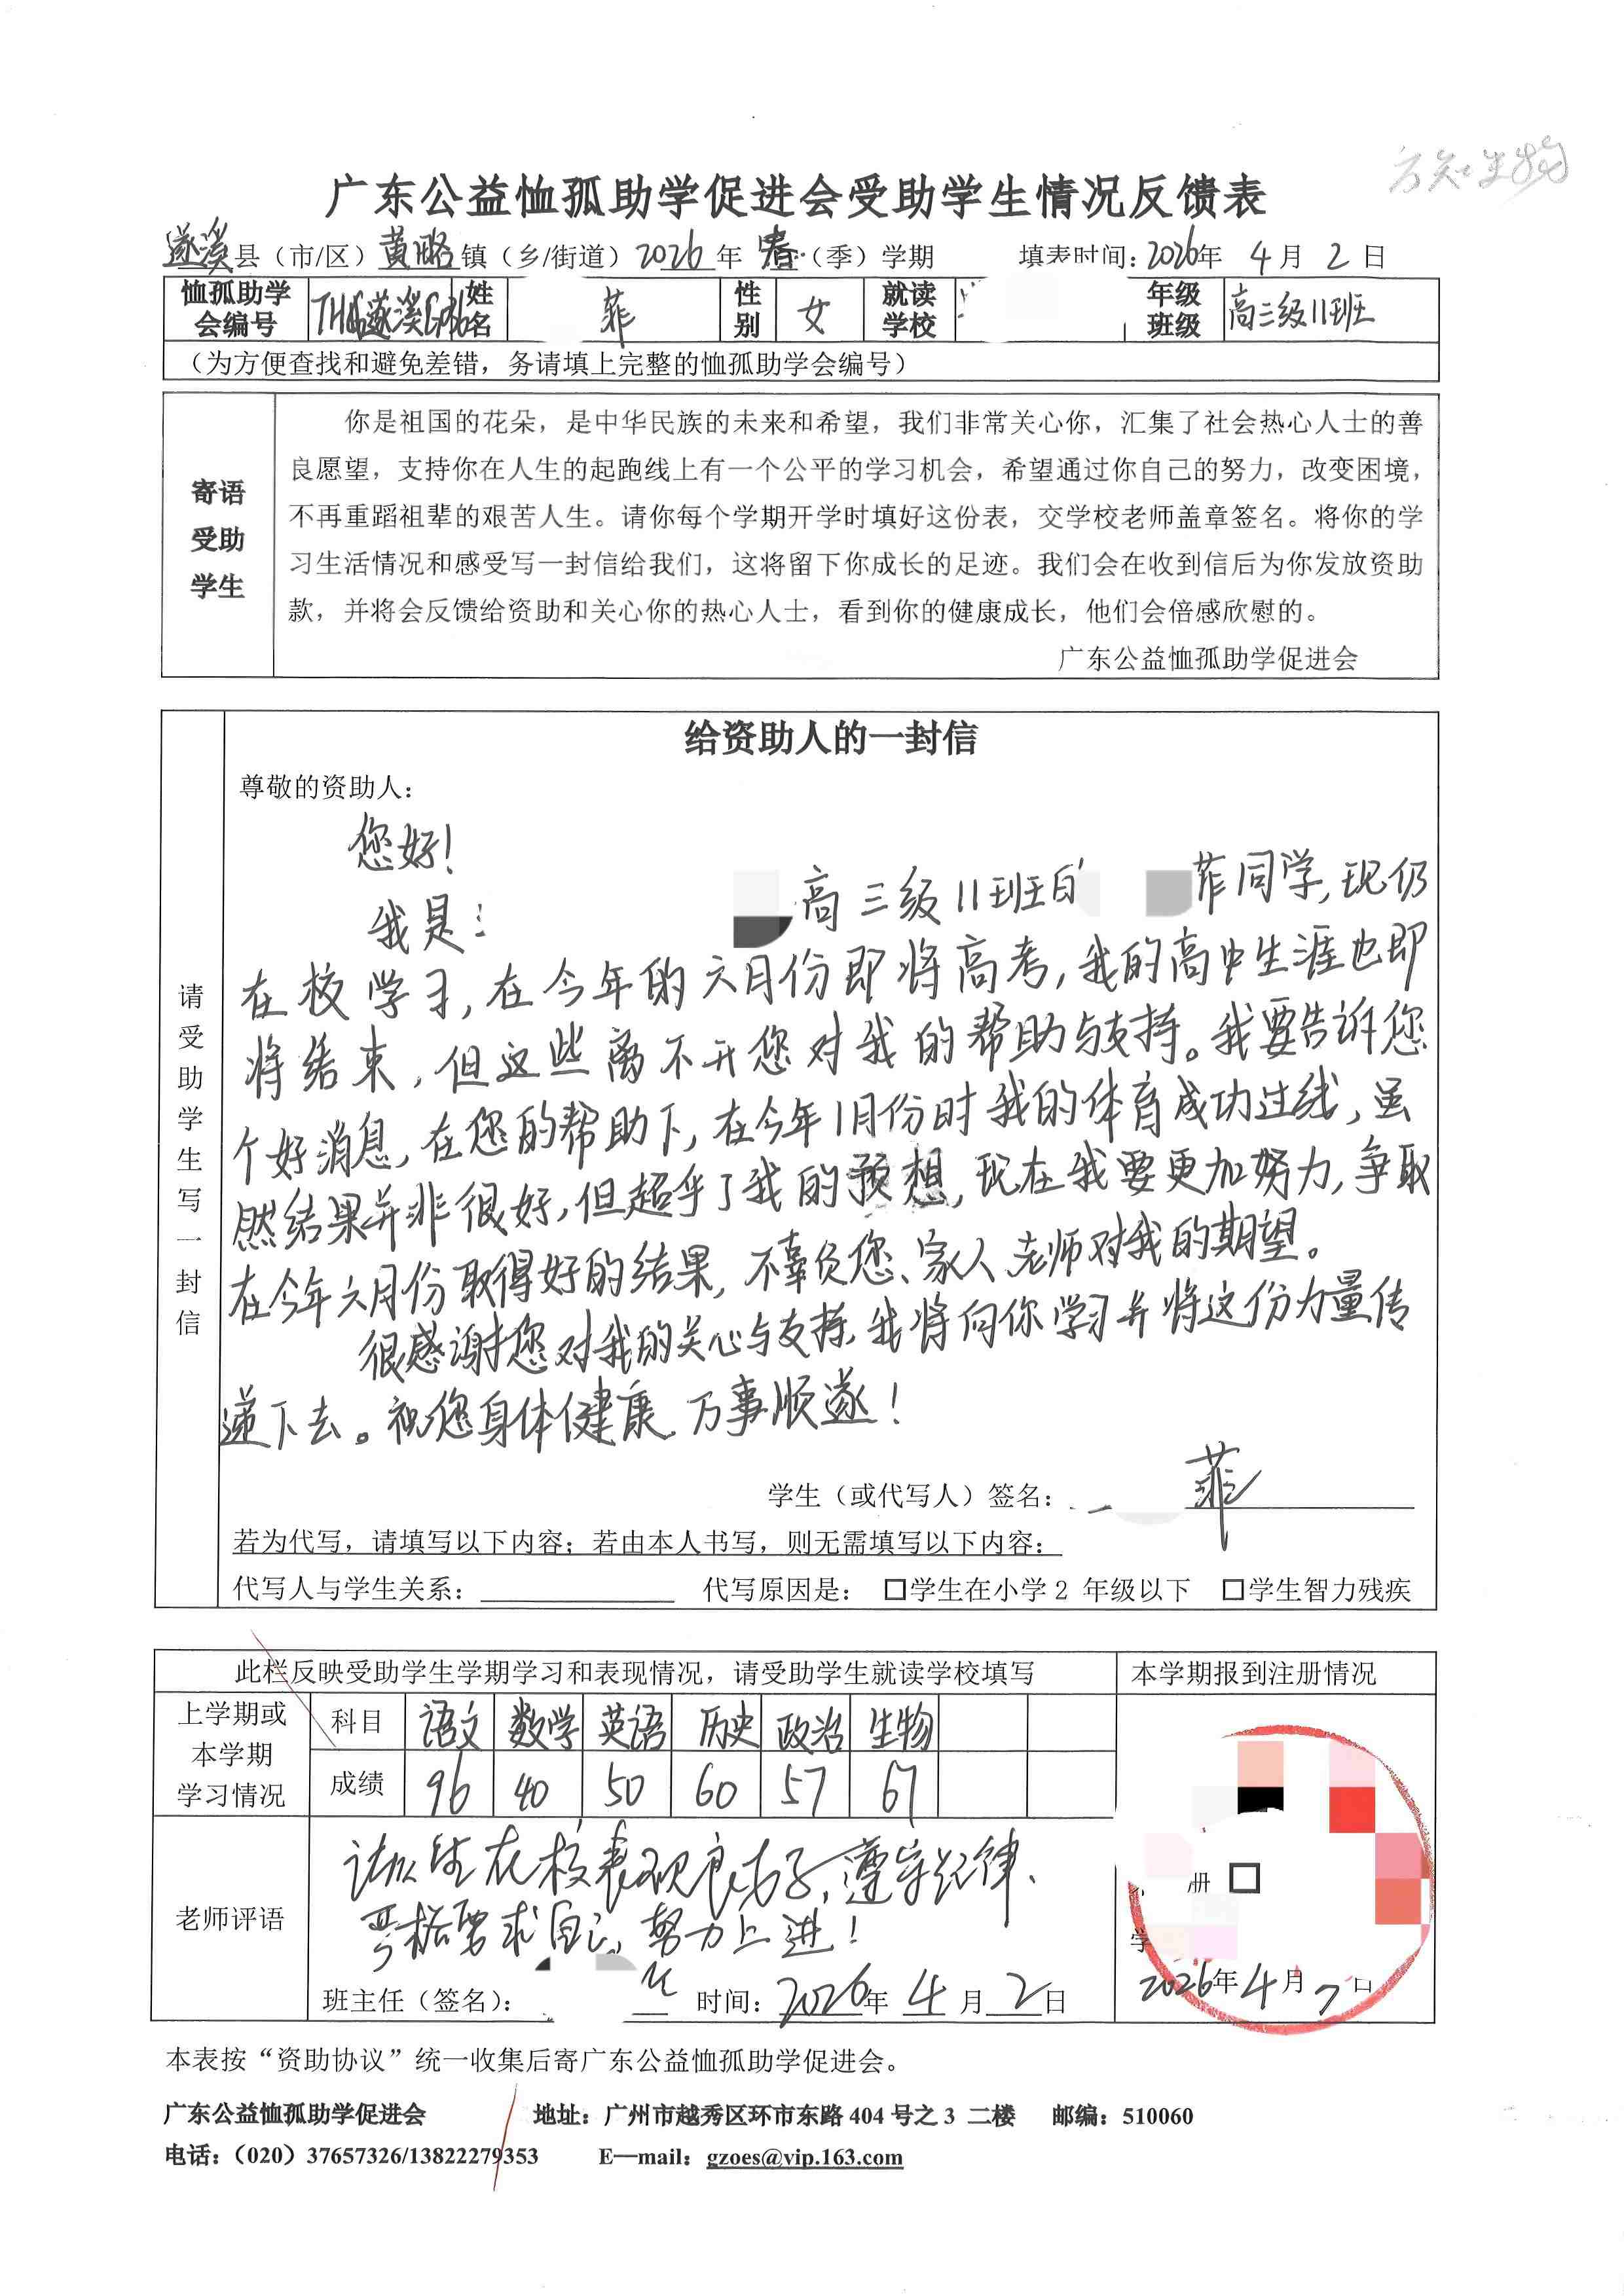 方知生物
广东公益恤孤助学促进会受助学生情况反馈表
遂溪县（市/区）黄略镇（乡/街道）2026年春（季）学期 填表时间：2026年4月2日
恤孤助学会编号 姓名 菲 性别 女 就读学校 年级班级 高三级11班
（为方便查找和避免差错，务请填上完整的恤孤助学会编号）
寄语受助学生
你是祖国的花朵，是中华民族的未来和希望，我们非常关心你，汇集了社会热心人士的善
良愿望，支持你在人生的起跑线上有一个公平的学习机会，希望通过你自己的努力，改变困境，
不再重蹈祖辈的艰苦人生。请你每个学期开学时填好这份表，交学校老师盖章签名。将你的学
习生活情况和感受写一封信给我们，这将留下你成长的足迹。我们会在收到信后为你发放资助
款，并将会反馈给资助和关心你的热心人士，看到你的健康成长，他们会倍感欣慰的。
广东公益恤孤助学促进会
请受助学生写一封信
给资助人的一封信
尊敬的资助人：
您好！
我是 高三级11班的 菲同学，现仍
在校学习，在今年的六月份即将高考，我的高中生涯也即
将结束，但这些离不开您对我的帮助与支持。我要告诉您
个好消息，在您的帮助下，在今年1月份时我的体育成功过线，虽
然结果并非很好，但超乎了我的预想，现在我要更加努力，争取
在今年六月份取得好的结果，不辜负您、家人、老师对我的期望。
很感谢您对我的关心与支持，我将向你学习并将这份力量传
递下去。祝您身体健康，万事顺遂！
学生（或代写人）签名： 菲
若为代写，请填写以下内容；若由本人书写，则无需填写以下内容：
代写人与学生关系： 代写原因是： 口学生在小学2 年级以下 口学生智力残疾
此栏反映受助学生学期学习和表现情况，请受助学生就读学校填写 本学期报到注册情况
上学期或本学期学习情况
科目 语文 数学 英语 历史 政治 生物
成绩 96 40 50 60 57 67
老师评语
该生在校表现良好，遵守纪律、
严格要求自己，努力上进！
班主任（签名）： 时间：2026年4月2日
册 口
学
2026年4月 日
本表按“资助协议”统一收集后寄广东公益恤孤助学促进会。
广东公益恤孤助学促进会 地址：广州市越秀区环市东路 404 号之 3 二楼 邮编：510060
电话：（020）37657326/13822279353 E—mail：gzoes@vip.163.com